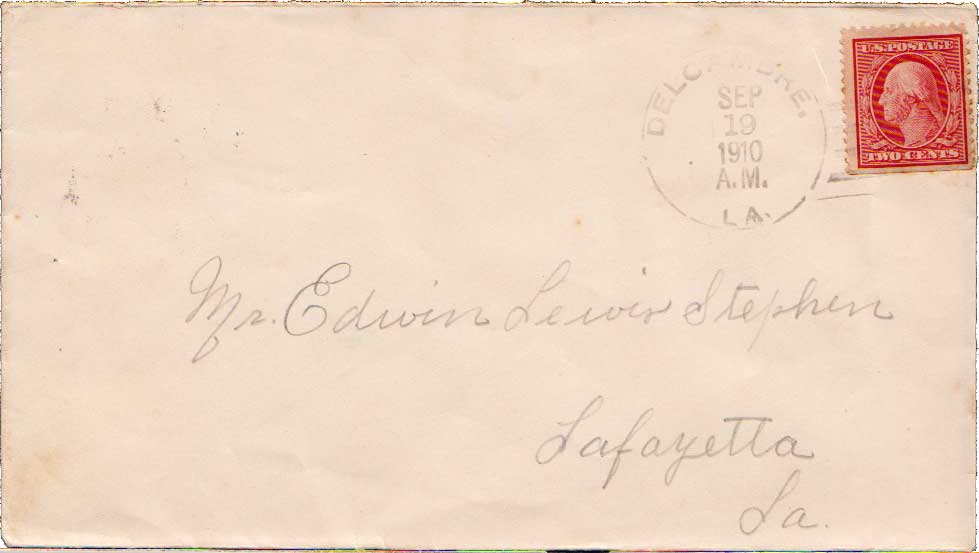 U.S. POSTAGE
TWO CENTS
DELCAMBRE.
SEP
19
1910
A.M.
LA.
Mr. Edwin Lewis Stephen
Lafayetta
La.